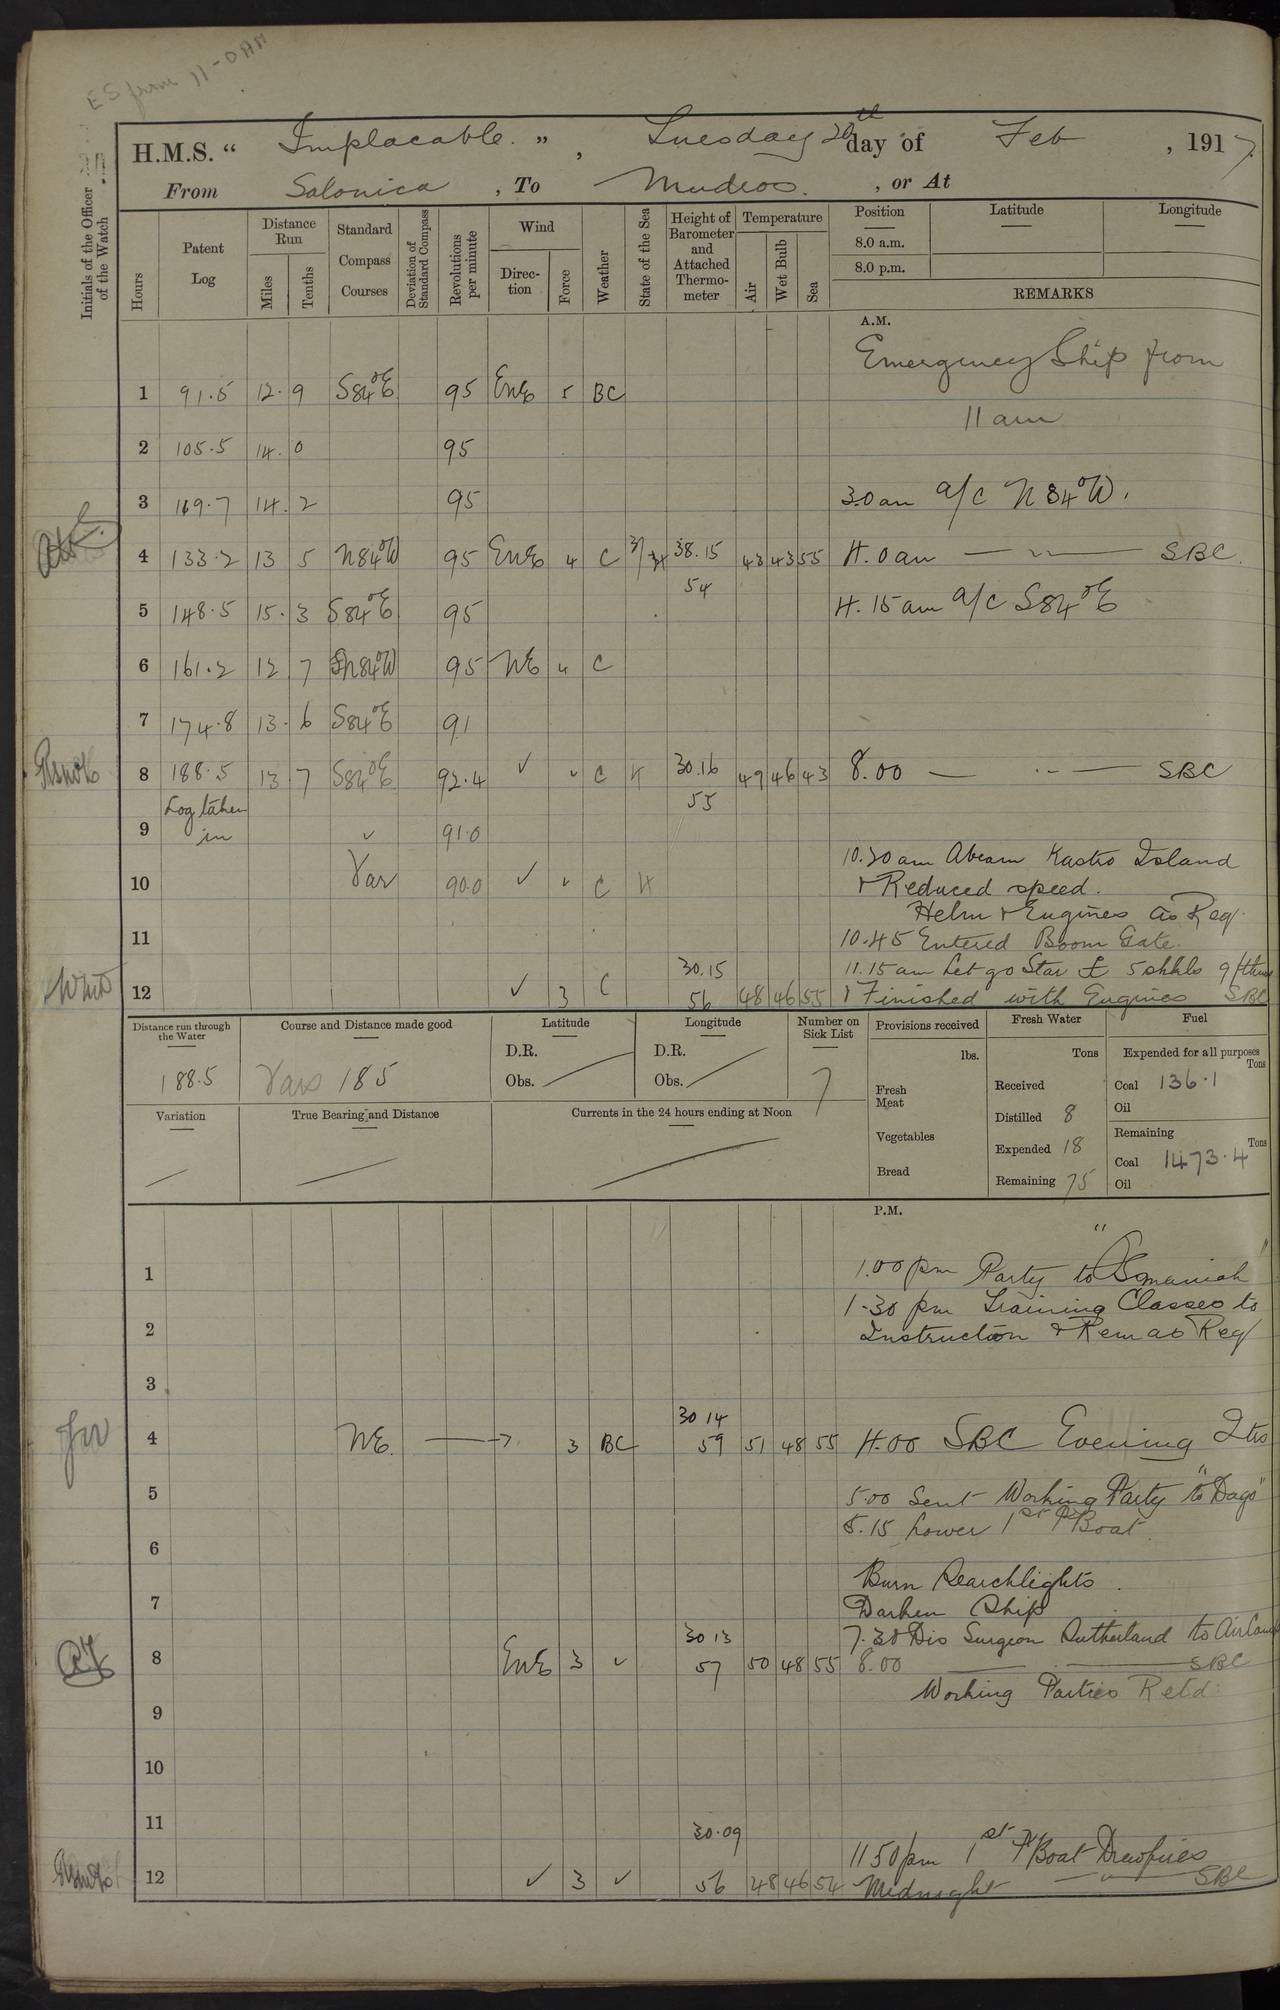 ES from 11-0 AM
H.M.S. “ Implacable. ” , Tuesday 20th day of Feb , 1917.
From Salonica , To Mudros. , or At
Initials of the Officer of the Watch
Hours
Patent Log
Distance Run
Miles
Tenths
Standard Compass Courses
Deviation of Standard Compass
Revolutions per minute
Wind
Direction
Force
Weather
State of the Sea
Height of Barometer and Attached Thermometer
Temperature
Air
Wet Bulb
Sea
Position
Latitude
Longitude
8.0 a.m.
8.0 p.m.
REMARKS
A.M.
Emergency Ship from
1 91.5 12. 9 S84°E 95 ENE 5 BC
11 am
2 105.5 14. 0 95
3 119.7 14. 2 95 3.0 am a/c N84°W.
4 133.2 13 5 N84°W 95 ENE 4 C 38.15 43 43 55 4.0 am — " — SBC.
54
5 148.5 15. 3 S84°E 95 4.15 am a/c S84°E
6 161.2 12 7 N84°W 95 NE 4 C
7 174.8 13. 6 S84°E 91
8 188.5 13 7 S84°E 92.4 ✓ " C 30.16 49 46 43 8.00 — " — SBC
55
Log taken
9 in ✓ 91.0
10.30 am Abeam Kastro Island
10 Var 90.0 ✓ " C & Reduced speed.
Helm & Engines as Req.
11 10.45 Entered Boom Gate.
30.15 11.15 am Let go Star 5 shkls
12 ✓ 3 C 56 48 46 55 & Finished with Engines SBC
Distance run through the Water
188.5
Course and Distance made good
Vars 185
Latitude
D.R.
Obs.
Longitude
D.R.
Obs.
Number on Sick List
7
Provisions received
lbs.
Fresh Meat
Vegetables
Bread
Fresh Water
Tons
Received
Distilled 8
Expended 18
Remaining 75
Fuel
Expended for all purposes
Tons
Coal 136.1
Oil
Remaining
Tons
Coal 1473.4
Oil
Variation
True Bearing and Distance
Currents in the 24 hours ending at Noon
P.M.
1 1.00 pm Party to "Osmanieh"
1.30 pm Training Classes to
2 Instruction & Rem as Req
3
30 14
4 NE. → 3 BC 59 51 48 55 4.00 SBC Evening Qtrs
5 5.00 Sent Working Party to "Dago"
5.15 Lower 1st P Boat
6
Burn Searchlights.
7 Darken Ship
30 13 7.30 Dis Surgeon Sutherland to Air Camp
8 ENE 3 ✓ 57 50 48 55 8.00 — — SBC
Working Parties Retd.
9
10
11
30.09
1150 pm 1st P Boat Drew fires
12 ✓ 3 ✓ 56 48 46 54 Midnight — " — SBC